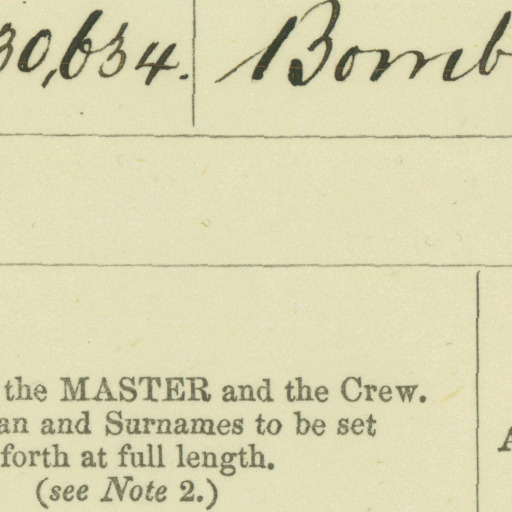 30,634. Bomb
the MASTER and the Crew.
an and Surnames to be set
forth at full length.
(see Note 2.)